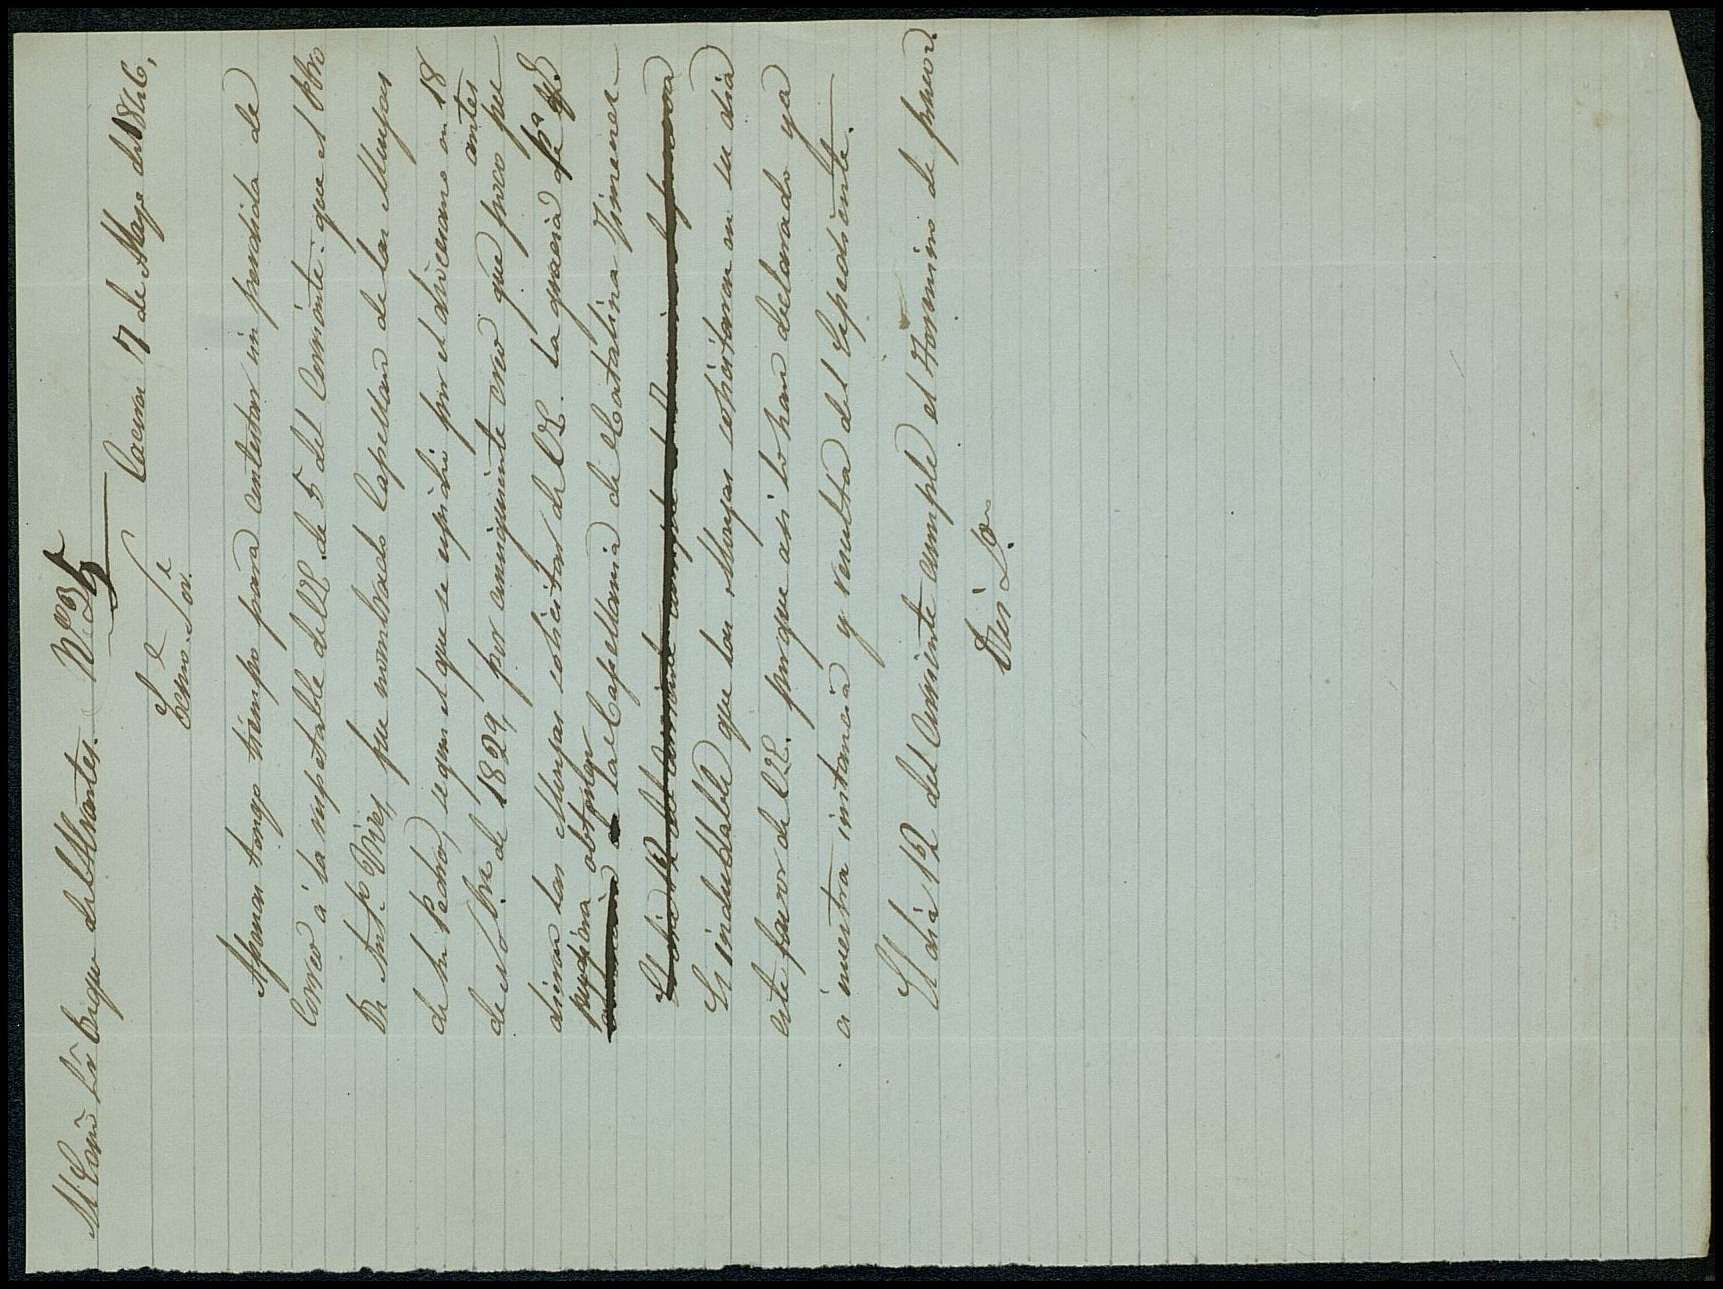 Al Exmo Sr Duque de Abrantes. N.º 3.
Caceres 7 de Mayo de 1846,
Exmo. Sor.
Apenas tengo tiempo para contestar sin perdida de
Correo á la respetable de V.E. de 5 del Corriente: que el Pbro
Dn. Ant.º Vives, fue nombrado Capellan de las Monjas
de Sn Pedro, segun el que se espidio por el diocesano en 18
de Nobbre. de 1829, por consiguiente creo que poco antes pu
dieron las Monjas solicitar de V.E. la gracia de pª qe.
pudiera obtener la Capellania de Catalina Jimenez
Es indudable que las Monjas solicitaron en su dia
este favor de V.E. porque asi lo han declarado ya
a nuestra instancia y resulta del Espediente.
El dia 12 del Corriente cumple el termino de prueva.
Dios &ª